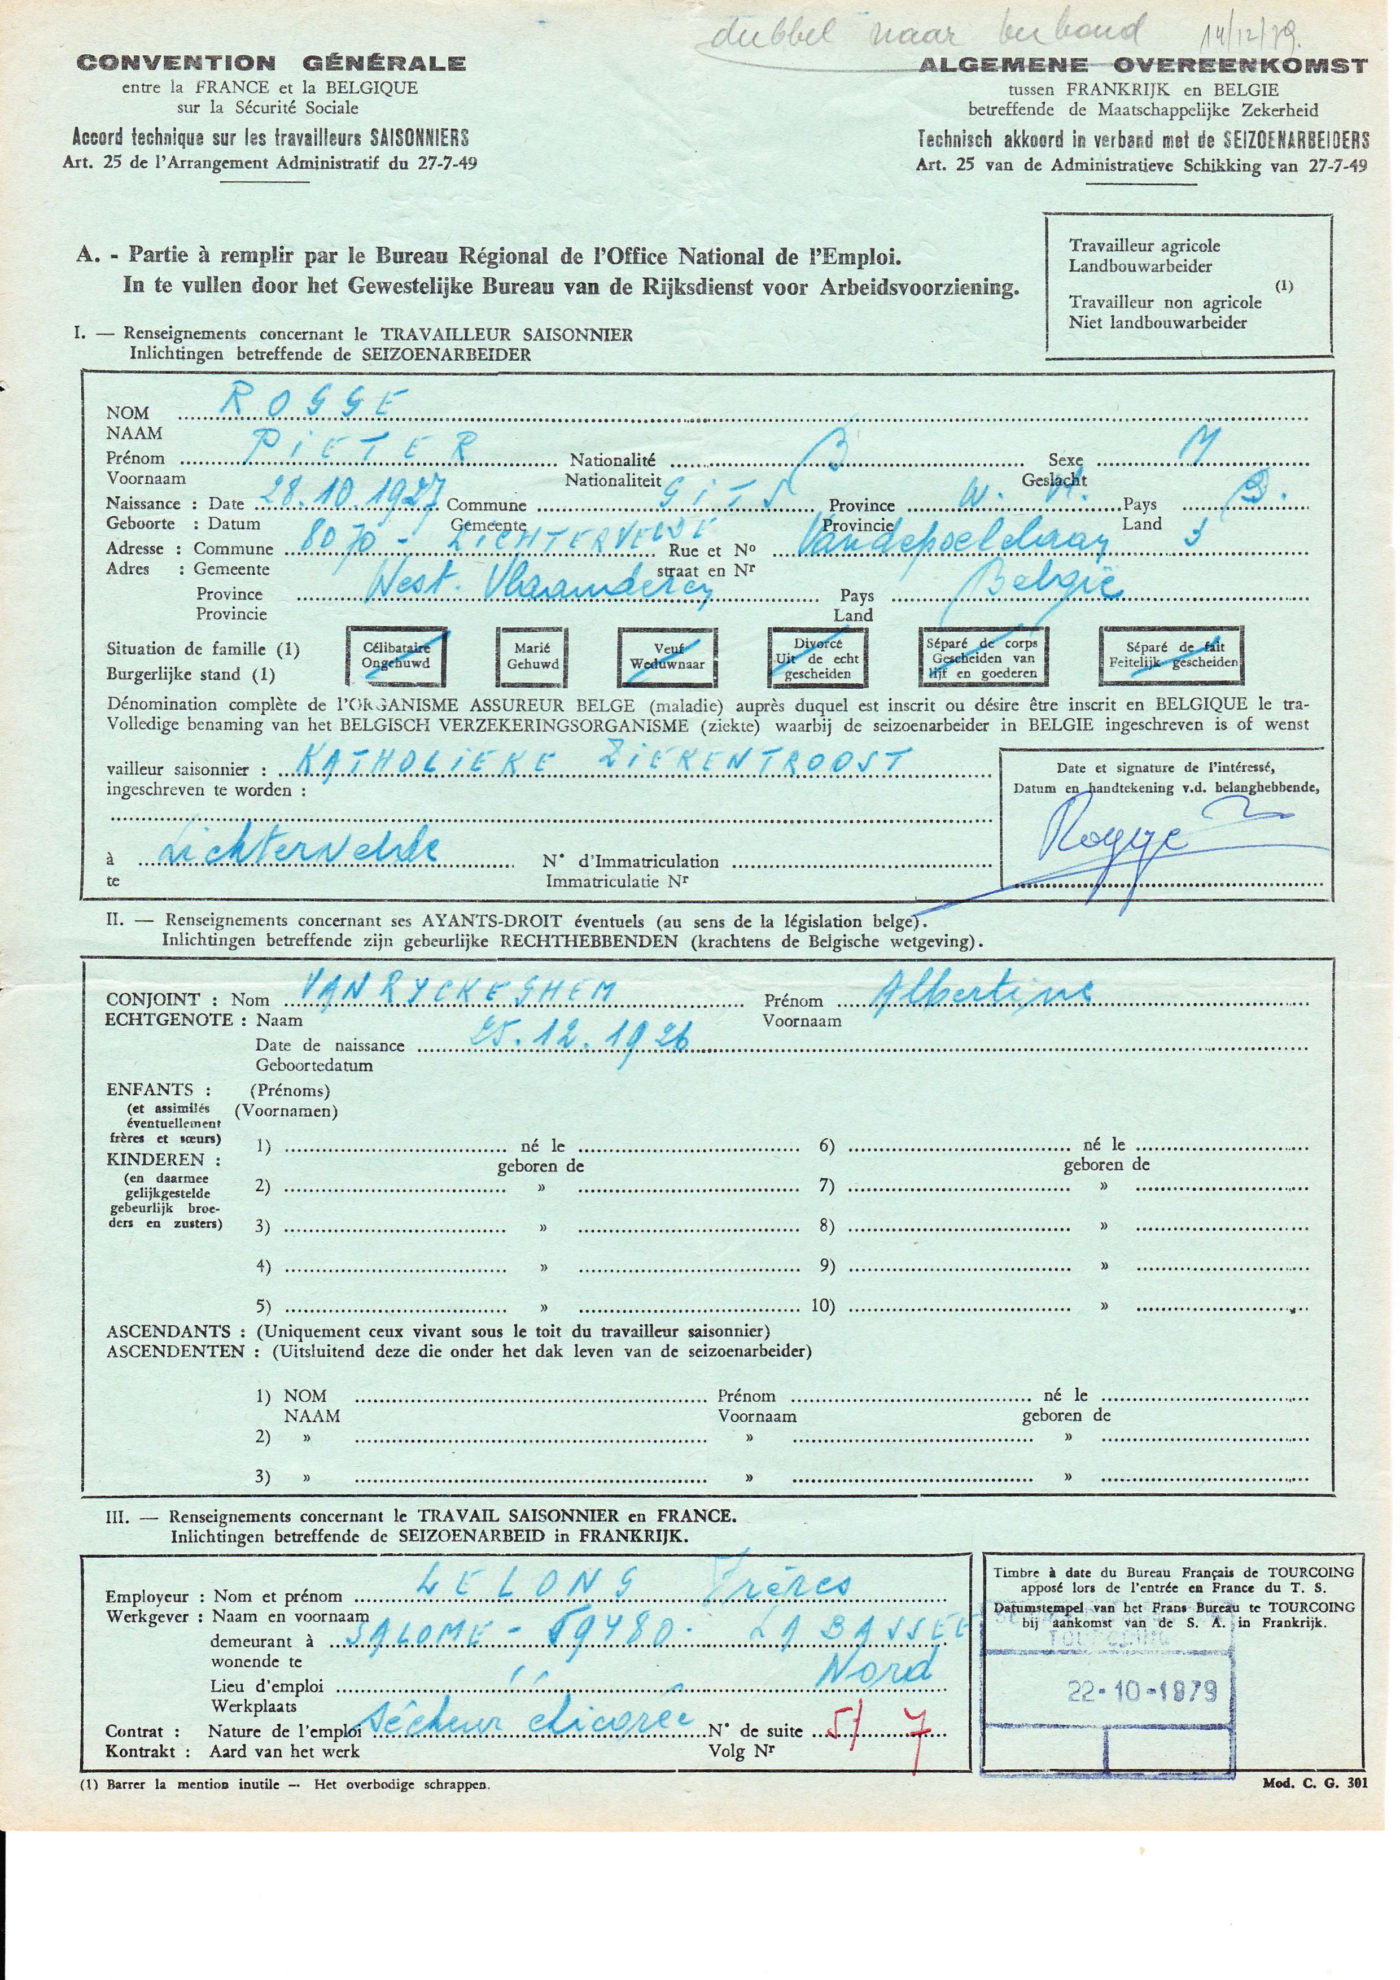 dubbel naar verbond 14/12/79.
CONVENTION GÉNÉRALE
entre la FRANCE et la BELGIQUE
sur la Sécurité Sociale
Accord technique sur les travailleurs SAISONNIERS
Art. 25 de l'Arrangement Administratif du 27-7-49
ALGEMENE OVEREENKOMST
tussen FRANKRIJK en BELGIE
betreffende de Maatschappelijke Zekerheid
Technisch akkoord in verband met de SEIZOENARBEIDERS
Art. 25 van de Administratieve Schikking van 27-7-49
A. - Partie à remplir par le Bureau Régional de l'Office National de l'Emploi.
In te vullen door het Gewestelijke Bureau van de Rijksdienst voor Arbeidsvoorziening.
Travailleur agricole
Landbouwarbeider
(1)
Travailleur non agricole
Niet landbouwarbeider
I. — Renseignements concernant le TRAVAILLEUR SAISONNIER
Inlichtingen betreffende de SEIZOENARBEIDER
NOM ROGGE
NAAM
Prénom PIETER Nationalité B Sexe M
Voornaam Nationaliteit Geslacht
Naissance : Date 28.10.1927 Commune GITS Province W. Vl. Pays B.
Geboorte : Datum Gemeente Provincie Land
Adresse : Commune 8070 - LICHTERVELDE Rue et No 3
Adres : Gemeente straat en Nr
Province West. Vlaanderen Pays België
Provincie Land
Situation de famille (1)
Burgerlijke stand (1)
Célibataire
Ongehuwd
Marié
Gehuwd
Veuf
Weduwnaar
Divorcé
Uit de echt
gescheiden
Séparé de corps
Gescheiden van
lijf en goederen
Séparé de fait
Feitelijk gescheiden
Dénomination complète de l'ORGANISME ASSUREUR BELGE (maladie) auprès duquel est inscrit ou désire être inscrit en BELGIQUE le tra-
Volledige benaming van het BELGISCH VERZEKERINGSORGANISME (ziekte) waarbij de seizoenarbeider in BELGIE ingeschreven is of wenst
vailleur saisonnier : KATHOLIEKE ZIEKENTROOST
ingeschreven te worden :
Date et signature de l'intéressé,
Datum en handtekening v.d. belanghebbende,
Rogge
à Lichtervelde N° d'Immatriculation
te Immatriculatie Nr
II. — Renseignements concernant ses AYANTS-DROIT éventuels (au sens de la législation belge).
Inlichtingen betreffende zijn gebeurlijke RECHTHEBBENDEN (krachtens de Belgische wetgeving).
CONJOINT : Nom VANRYCKEGHEM Prénom Albertine
ECHTGENOTE : Naam Voornaam
Date de naissance 25.12.1926
Geboortedatum
ENFANTS : (Prénoms)
(et assimilés (Voornamen)
éventuellement
frères et sœurs)
1) né le 6) né le
KINDEREN : geboren de geboren de
(en daarmee
gelijkgestelde
gebeurlijk broe-
ders en zusters)
2) » 7) »
3) » 8) »
4) » 9) »
5) » 10) »
ASCENDANTS : (Uniquement ceux vivant sous le toit du travailleur saisonnier)
ASCENDENTEN : (Uitsluitend deze die onder het dak leven van de seizoenarbeider)
1) NOM Prénom né le
NAAM Voornaam geboren de
2) » » »
3) » » »
III. — Renseignements concernant le TRAVAIL SAISONNIER en FRANCE.
Inlichtingen betreffende de SEIZOENARBEID in FRANKRIJK.
Employeur : Nom et prénom LELONG Frères
Werkgever : Naam en voornaam
demeurant à SALOME - 59480. LA BASSEE
wonende te Nord
Lieu d'emploi ,,
Werkplaats
Contrat : Nature de l'emploi Sécheur chicorée N° de suite 51 7
Kontrakt : Aard van het werk Volg Nr
Timbre à date du Bureau Français de TOURCOING
apposé lors de l'entrée en France du T. S.
Datumstempel van het Frans Bureau te TOURCOING
bij aankomst van de S. A. in Frankrijk.
TOURCOING
22-10-1979
(1) Barrer la mention inutile — Het overbodige schrappen.
Mod. C. G. 301